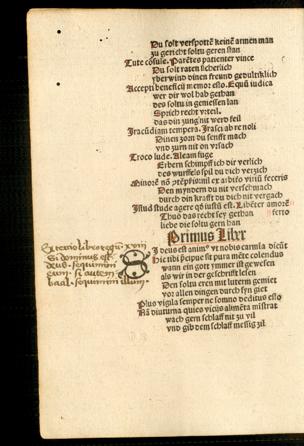 Du solt verspottē keinē armen man
zu gericht soltu geren stan
Tute cōsule. Parētes patienter vince
Du solt raten sicherlich
vberwind dinen freund gedultiklich
Accepti beneficij memor esto. Equū iudica
wer dir wol hab gethan
des soltu in geniessen lan
Sprich recht vrteil.
das din zung nit werd feil
Iracūdiam tempera. Irasci ab re noli
Dinen zorn du senfft mach
vnd zurn nit on vrsach
Troco lude. Aleam fuge
Erbern schimpff ich dir verlich
des wurffels spil du dich verzich
Minorē nō
Den myndern du nit verschmach
durch din krafft du dich nit vergach
Istud stude agere qd iustū est. Libēter amorē
Thuo das recht sey gethan ferto
liebe die soltu gern han
Primus Liber
Si deus est animꝰ vt nobis carmīa dicūt
Hic tibi p̄cipue sit pura mēte colendus
wann ein gott ymmer ist gewesen
als wir in der geschrifft lesen
Den soltu eren mit luterm gemiet
vor allen dingen durch syn giet
Plus vigila semper ne somno deditus esto
Nā diuturna quies vicijs alimēta mīstrat
wach gern schlaff nit zu vil
vnd gib dem schlaff messig zil
Si dominus est
deus sequimini
eum si autem
baal sequimini illum